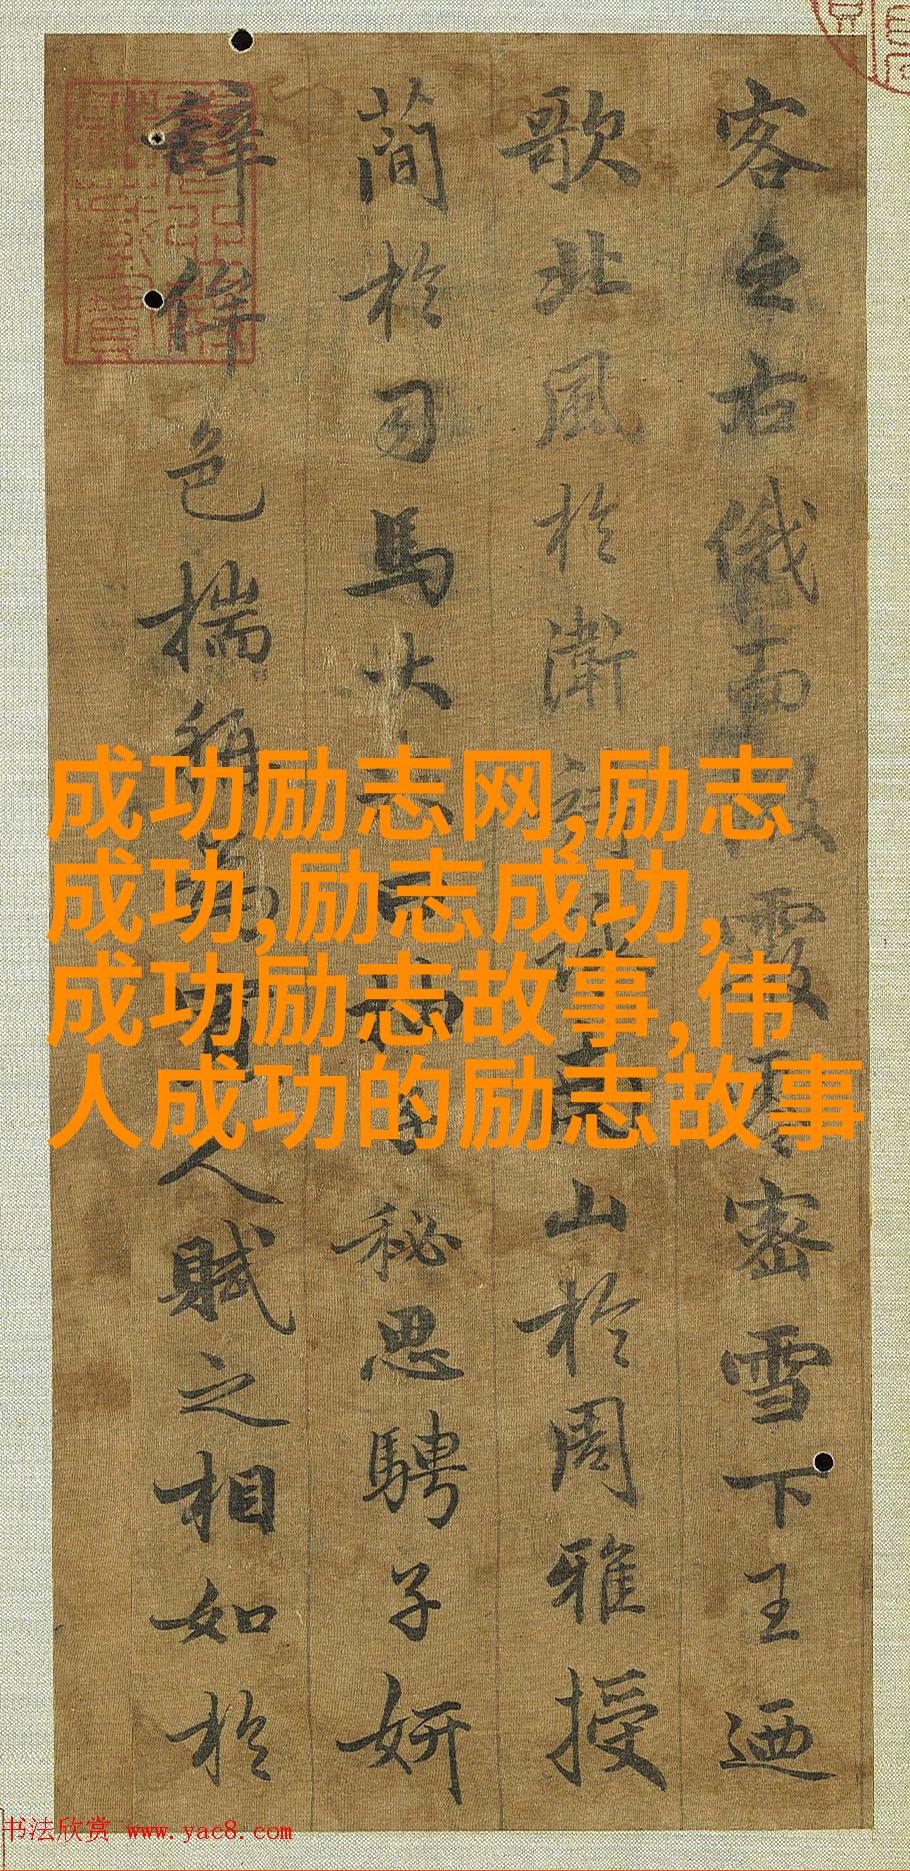 客之右俄而霰密雪下王迺
歌北風於衛南山於周雅授
簡於司馬大夫曰秘思騁子妍
辭侔色揣稱人賦之相如於
成功励志网,励志
成功,励志成功,
成功励志故事,伟
人成功的励志故事
书法欣赏 www.yac8.com